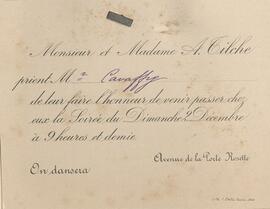 Monsieur et Madame A. Tilche
prient Mr Cavaffy
de leur faire l'honneur de venir passer chez
eux la Soirée du Dimanche 2 Décembre
à 9 heures et demie
Avenue de la Porte Rosette
On dansera